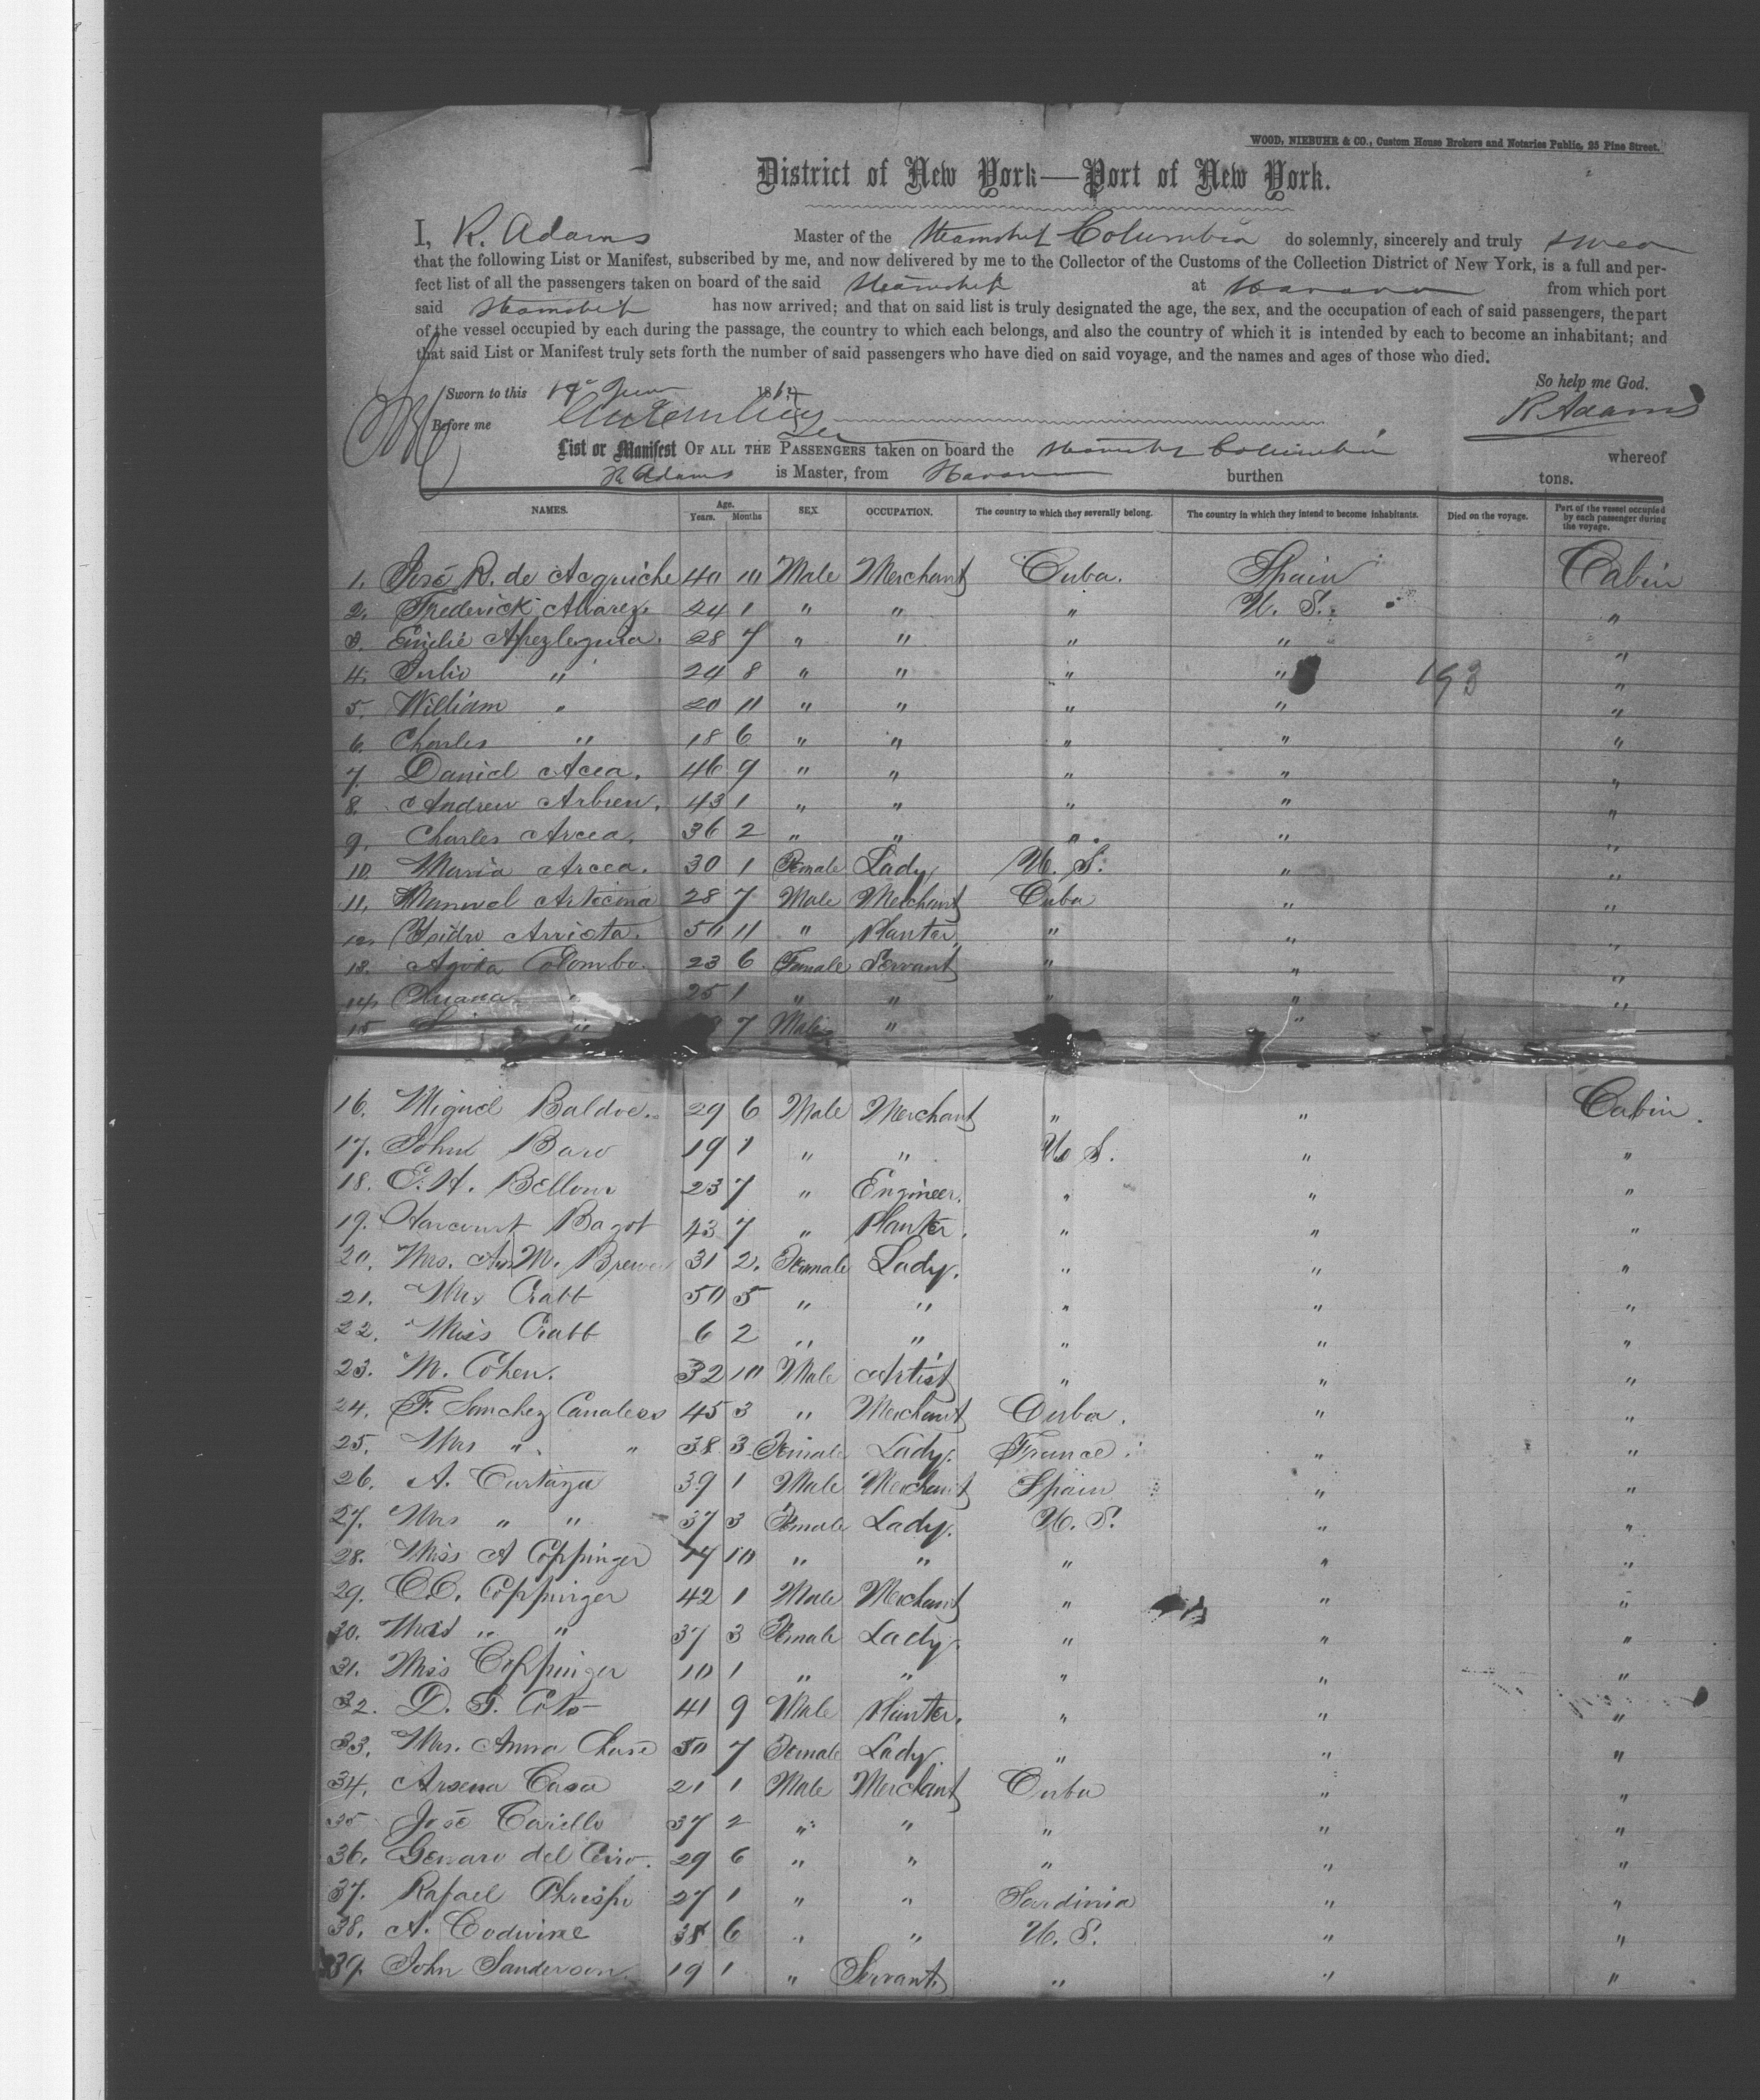 WOOD, NIEBUHR & CO., Custom House Brokers and Notaries Public, 25 Pine Street.
District of New York—Port of New York.
I, R. Adams Master of the Steamship Columbia do solemnly, sincerely and truly swear
that the following List or Manifest, subscribed by me, and now delivered by me to the Collector of the Customs of the Collection District of New York, is a full and per-
fect list of all the passengers taken on board of the said Steamship at Havana from which port
said Steamship has now arrived; and that on said list is truly designated the age, the sex, and the occupation of each of said passengers, the part
of the vessel occupied by each during the passage, the country to which each belongs, and also the country of which it is intended by each to become an inhabitant; and
that said List or Manifest truly sets forth the number of said passengers who have died on said voyage, and the names and ages of those who died.
So help me God.
Sworn to this 186
R Adams
Before me
List or Manifest OF ALL THE PASSENGERS taken on board the Steamship Columbia whereof
R Adams is Master, from Havana burthen tons.
NAMES. Age. Years. Months SEX OCCUPATION. The country to which they severally belong. The country in which they intend to become inhabitants. Died on the voyage. Part of the vessel occupied by each passenger during the voyage.
1. José R. de Acquiche 40 10 Male Merchant Cuba. Spain Cabin
2. Frederick Alvarez. 24 1 " " " U. S. "
3. Emilie Apezleguia. 28 7 " " " " "
4. Julio " 24 8 " " " " 193 "
5. William " 20 11 " " " " "
6. Charles " 18 6 " " " " "
7. Daniel Acea. 46 9 " " " " "
8. Andrew Arbieu. 43 1 " " " " "
9. Charles Arcea. 36 2 " " " " "
10. Maria Arcea. 30 1 Female Lady U. S. " "
11. Manuel Artecina 28 7 Male Merchant Cuba " "
12. Ysidro Arrieta. 50 11 " Planter " " "
13. Colombo. 23 6 Female Servant " " "
14. " 25 1 " " " " "
15 " 7 Male " "
16. Miguel Baldoe. 29 6 Male Merchant " " Cabin.
17. John Baro 19 1 " " U. S. " "
18. E. H. Bellows 23 7 " Engineer. " " "
19. Harcourt Bagot 43 7 " Planter. " " "
20. Mrs. A. M. Brewer 31 2. Female Lady. " " "
21. Mrs Crabb 50 5 " " " " "
22. Miss Crabb 6 2 " " " " "
23. M. Cohen. 32 10 Male Artist " " "
24. F. Sanchez Canaleos 45 3 " Merchant Cuba. " "
25. Mrs " " 38 3 Female Lady. France. " "
26. A. Cartaya 39 1 Male Merchant Spain " "
27. Mrs " " 37 3 Female Lady. U. S. " "
28. Miss A Coppinger 14 10 " " " " "
29. C. C. Coppinger 42 1 Male Merchant " " "
30. Mrs " " 37 3 Female Lady. " " "
31. Miss Coppinger 10 1 " " " " "
32. D. G. Coto 41 9 Male Planter. " " "
33. Mrs. Anna Chase 50 7 Female Lady. " " "
34. Arsena Casa 21 1 Male Merchant Cuba " "
35 José Carillo 37 2 " " " " "
36. Genaro del Ceiro. 29 6 " " " " "
37. Rafael Chrispi 27 1 " " Sardinia " "
38. A. Codwise 38 6 " " U. S. " "
39. John Sanderson. 19 1 " Servant " " "